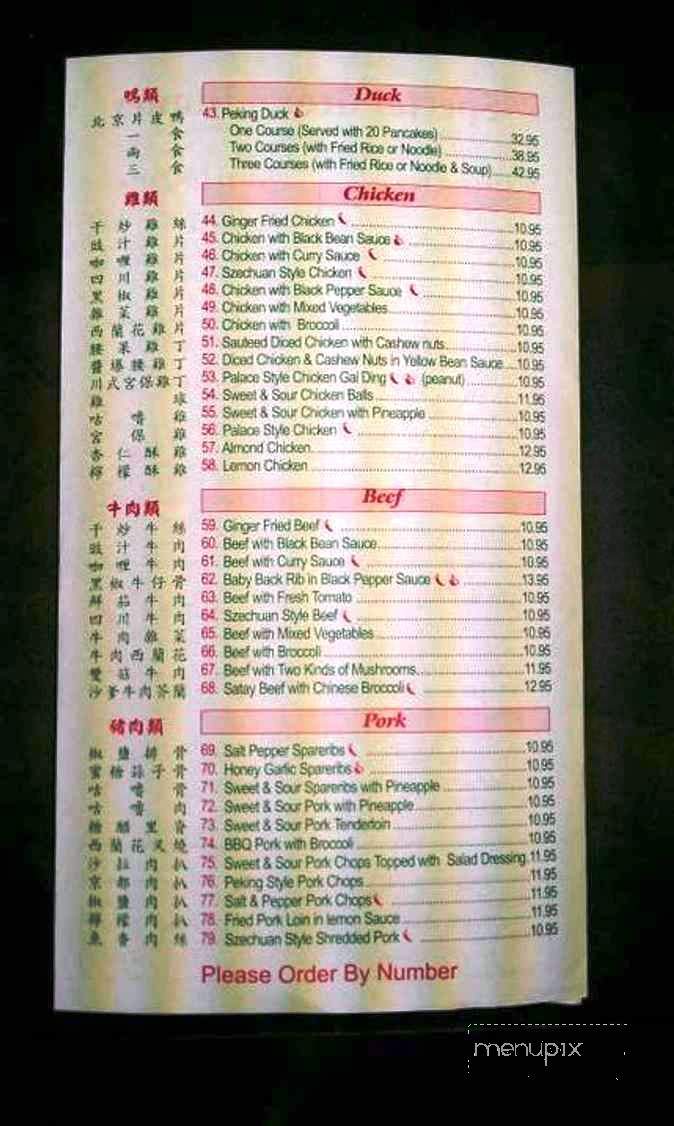 鴨類 Duck
北京片皮鴨 43. Peking Duck
一食 One Course (Served with 20 Pancakes) 32.95
兩食 Two Courses (with Fried Rice or Noodle) 38.95
三食 Three Courses (with Fried Rice or Noodle & Soup) 42.95
雞類 Chicken
干炒雞絲 44. Ginger Fried Chicken 10.95
豉汁雞片 45. Chicken with Black Bean Sauce 10.95
咖喱雞片 46. Chicken with Curry Sauce 10.95
四川雞片 47. Szechuan Style Chicken 10.95
黑椒雞片 48. Chicken with Black Pepper Sauce 10.95
雜菜雞片 49. Chicken with Mixed Vegetables 10.95
西蘭花雞片 50. Chicken with Broccoli 10.95
腰果雞丁 51. Sauteed Diced Chicken with Cashew nuts 10.95
醬爆腰雞丁 52. Diced Chicken & Cashew Nuts in Yellow Bean Sauce 10.95
川式宮保雞丁 53. Palace Style Chicken Gai Ding (peanut) 10.95
雞球 54. Sweet & Sour Chicken Balls 11.95
咕嚕雞 55. Sweet & Sour Chicken with Pineapple 10.95
宮保雞 56. Palace Style Chicken 10.95
杏仁酥雞 57. Almond Chicken 12.95
檸檬酥雞 58. Lemon Chicken 12.95
牛肉類 Beef
干炒牛絲 59. Ginger Fried Beef 10.95
豉汁牛肉 60. Beef with Black Bean Sauce 10.95
咖喱牛肉 61. Beef with Curry Sauce 10.95
黑椒牛仔骨 62. Baby Back Rib in Black Pepper Sauce 13.95
鮮茄牛肉 63. Beef with Fresh Tomato 10.95
四川牛肉 64. Szechuan Style Beef 10.95
牛肉雜菜 65. Beef with Mixed Vegetables 10.95
牛肉西蘭花 66. Beef with Broccoli 10.95
雙菇牛肉 67. Beef with Two Kinds of Mushrooms 11.95
沙爹牛肉芥蘭 68. Satay Beef with Chinese Broccoli 12.95
豬肉類 Pork
椒鹽排骨 69. Salt Pepper Spareribs 10.95
蜜糖蒜子骨 70. Honey Garlic Spareribs 10.95
咕嚕骨 71. Sweet & Sour Spareribs with Pineapple 10.95
咕嚕肉 72. Sweet & Sour Pork with Pineapple 10.95
糖醋里脊 73. Sweet & Sour Pork Tenderloin 10.95
西蘭花叉燒 74. BBQ Pork with Broccoli 10.95
沙拉肉扒 75. Sweet & Sour Pork Chops Topped with Salad Dressing 11.95
京都肉扒 76. Peking Style Pork Chops 11.95
椒鹽肉扒 77. Salt & Pepper Pork Chops 11.95
檸檬肉扒 78. Fried Pork Loin in lemon Sauce 11.95
魚香肉絲 79. Szechuan Style Shredded Pork 10.95
Please Order By Number
menupix